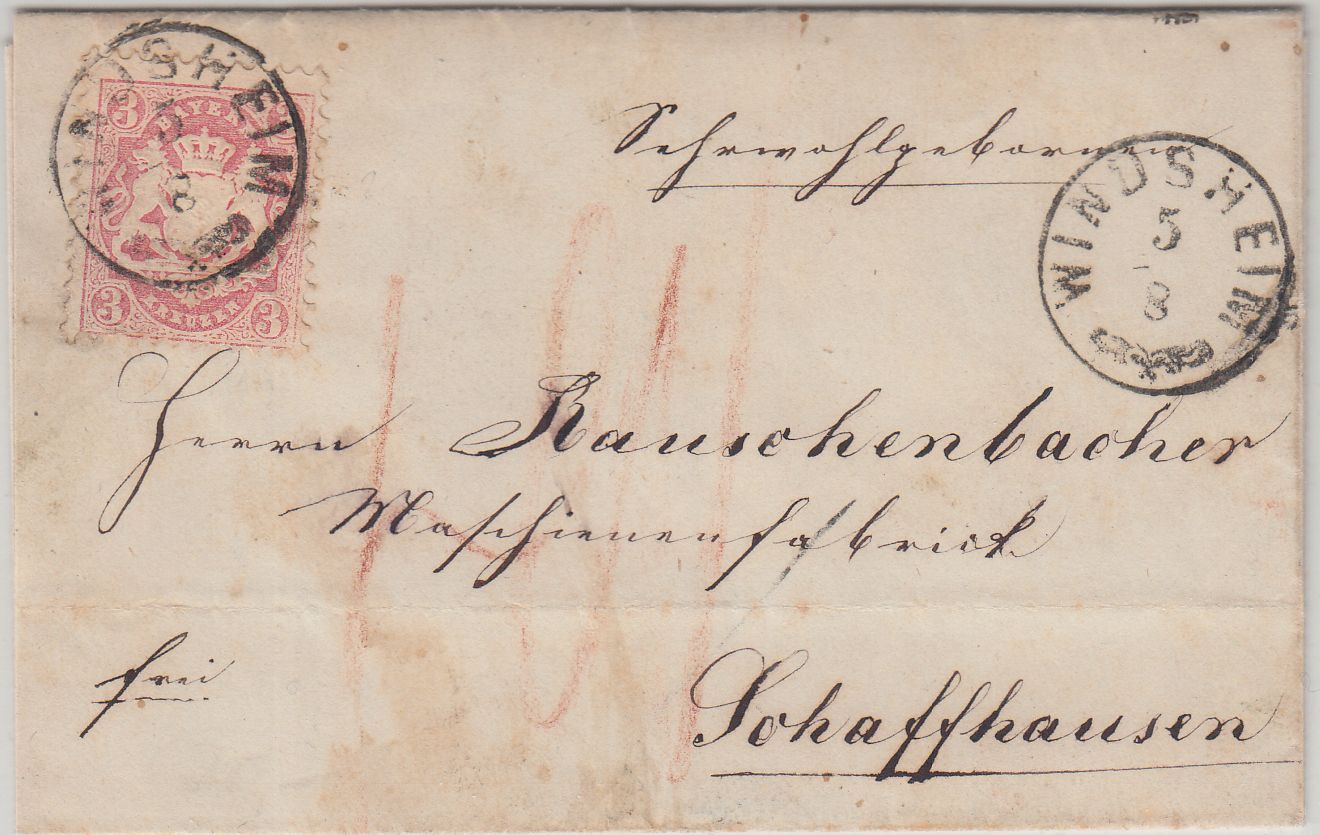 WINDSHEIM
5
8
3
BAYERN
3 KREUZER 3
Sehrwohlgebornen
WINDSHEIM
5
8
Herrn Rauschenbacher
Maschienenfabrick
frei
Schaffhausen